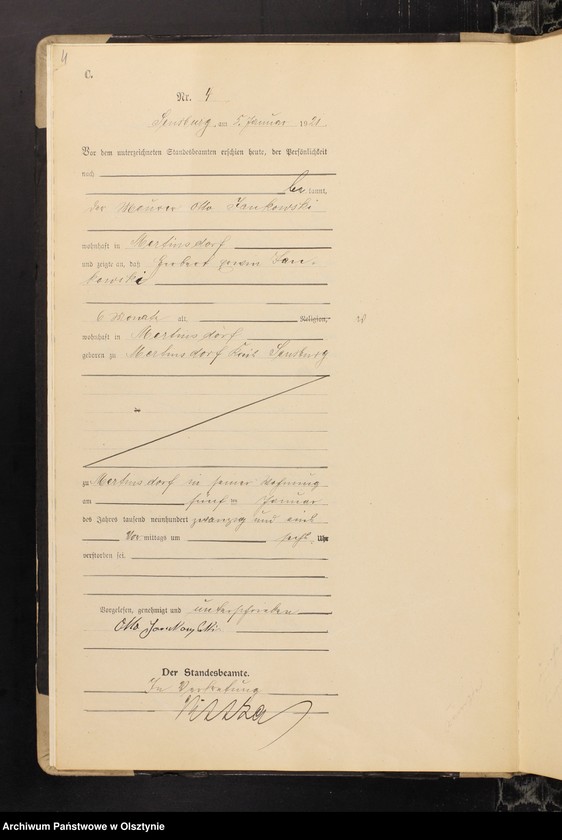 4
C.
Nr. 4
Sensburg, am 5. Januar 1921.
Vor dem unterzeichneten Standesbeamten erschien heute, der Persönlichkeit
nach
be kannt,
der Maurer Otto Jankowski
wohnhaft in Mertinsdorf
und zeigte an, daß
kowski
6 Monate alt, Religion,
wohnhaft in Mertinsdorf
geboren zu Mertinsdorf Kreis Sensburg
zu Mertinsdorf in seiner Wohnung
am fünften Januar
des Jahres tausend neunhundert zwanzig und eins
Vor mittags um Uhr
verstorben sei.
Vorgelesen, genehmigt und unterschrieben
Otto Jankowski
Der Standesbeamte.
In Vertretung
Archiwum Państwowe w Olsztynie